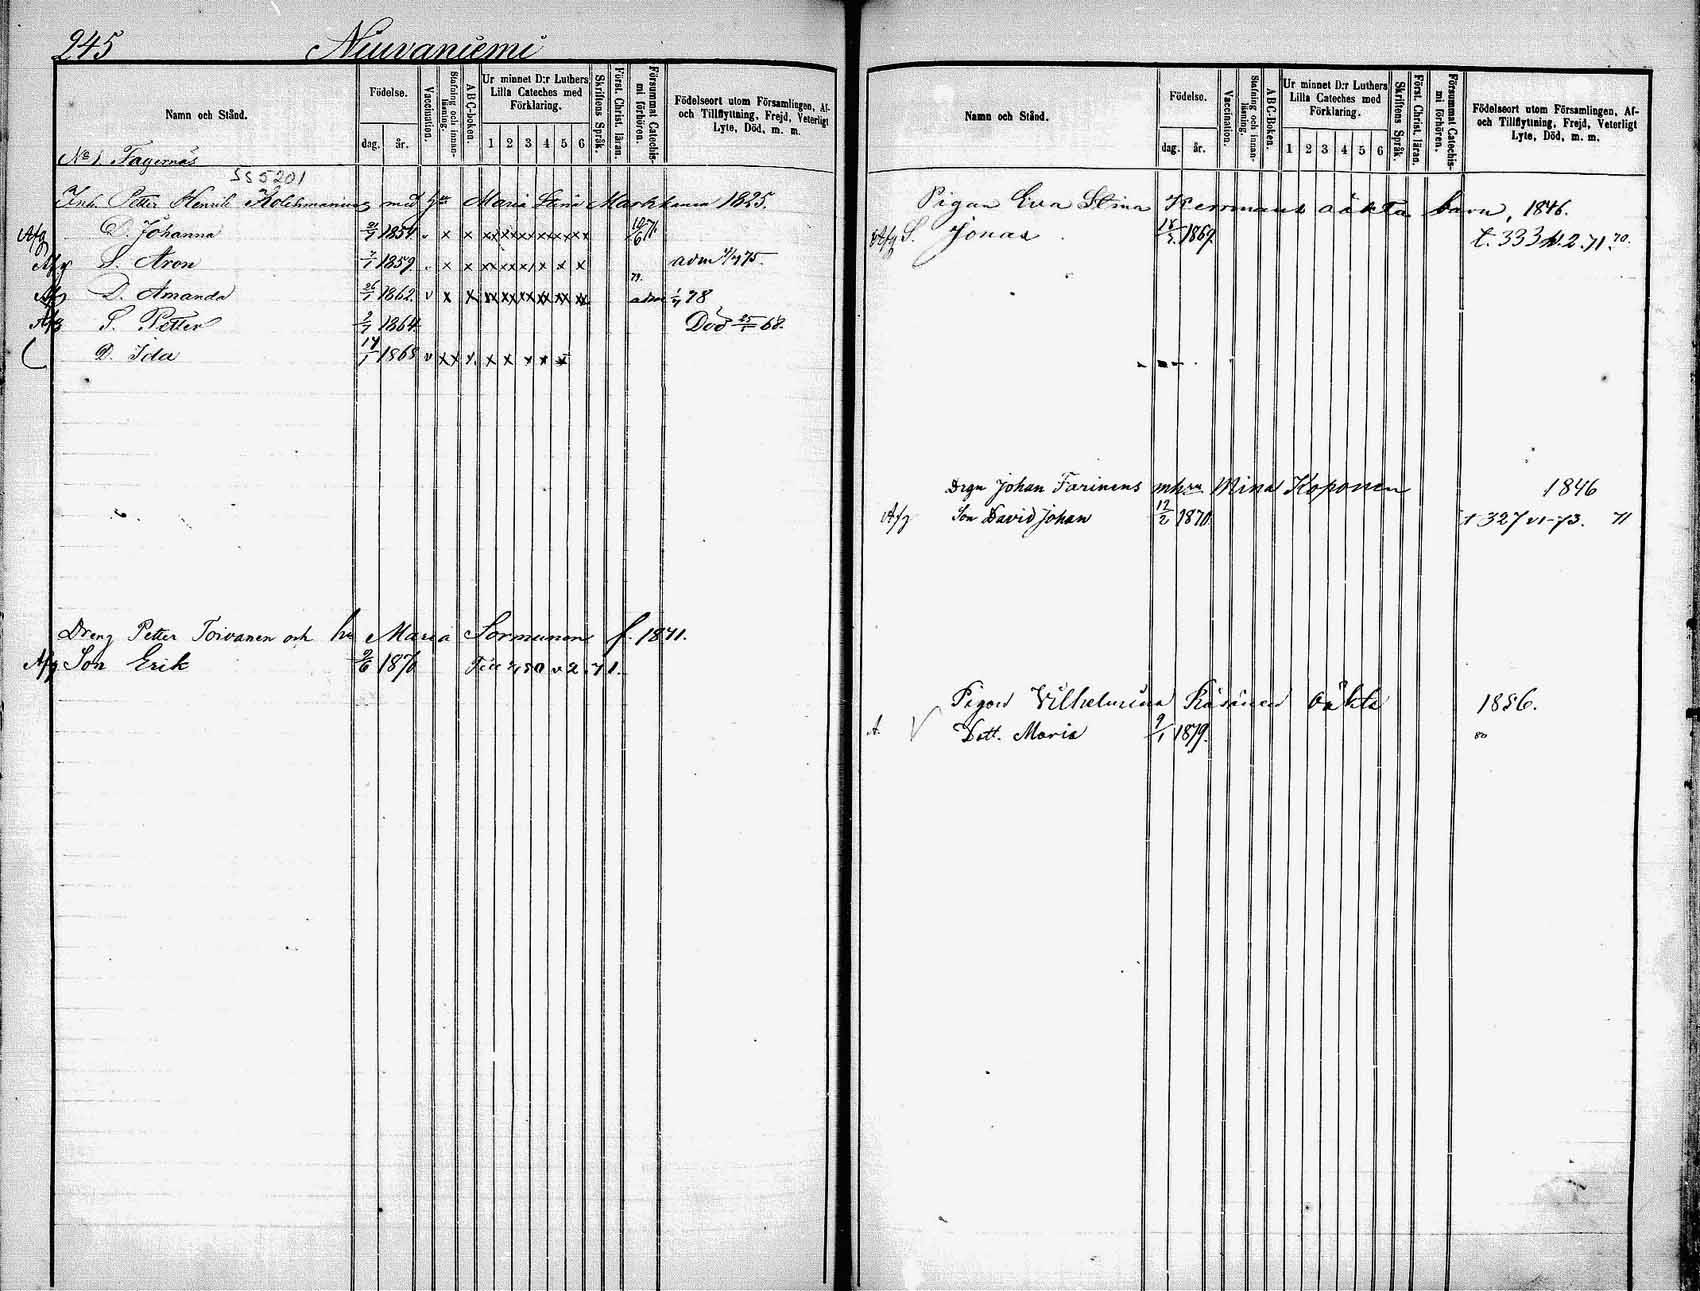 245 Niuvaniemi
Namn och Stånd.
Födelse.
dag. år.
Vaccination.
Stafning och innan-läsning.
ABC-boken.
Ur minnet D:r Luthers
Lilla Cateches med
Förklaring.
1 2 3 4 5 6
Skriftens Språk.
Först. Christ. läran.
Försummat Catechis-
mi förhören.
Födelseort utom Församlingen, Af-
och Tillflyttning, Frejd, Veterligt
Lyte, Död, m. m.
No 1. Fagernäs
SS 5201
Inh. Petter Henrik Kolehmainens med hu Maria Stina Markkanen 1825.
Afg D. Johanna 1854
Afg S. Aron 1859 adm 75.
Afg D. Amanda 26/1 1862 v adm 78
Afg S. Petter 2/7 1864 Död 25/1 68.
D. Ida 14/1 1868 v
Dreng Petter Toivanen och hu Maria Sormunen f. 1841.
Afg Son Erik 2/6 1870 Till 450 v 2. 71.
Namn och Stånd.
Födelse.
dag. år.
Vaccination.
Stafning och innan-läsning.
ABC-Boken.
Ur minnet D:r Luthers
Lilla Cateches med
Förklaring.
1 2 3 4 5 6
Skriftens Språk.
Först. Christ. läran.
Försummat Catechis-
mi förhören.
Födelseort utom Församlingen, Af-
och Tillflyttning, Frejd, Veterligt
Lyte, Död, m. m.
Pigan Eva Stina Hermans oäkta barn, 1846.
Afg S. Jonas 1869 t. 333 v. 2. 71. 70.
Dregn Johan Farinens mhru Mina Koponen 1846
Afg Son David Johan 12/2 1870 t 327 v1-73. 71
Pigan Vilhelmina Räsänen oäkta 1856.
A. V Dott. Maria 9/1 1879. 80